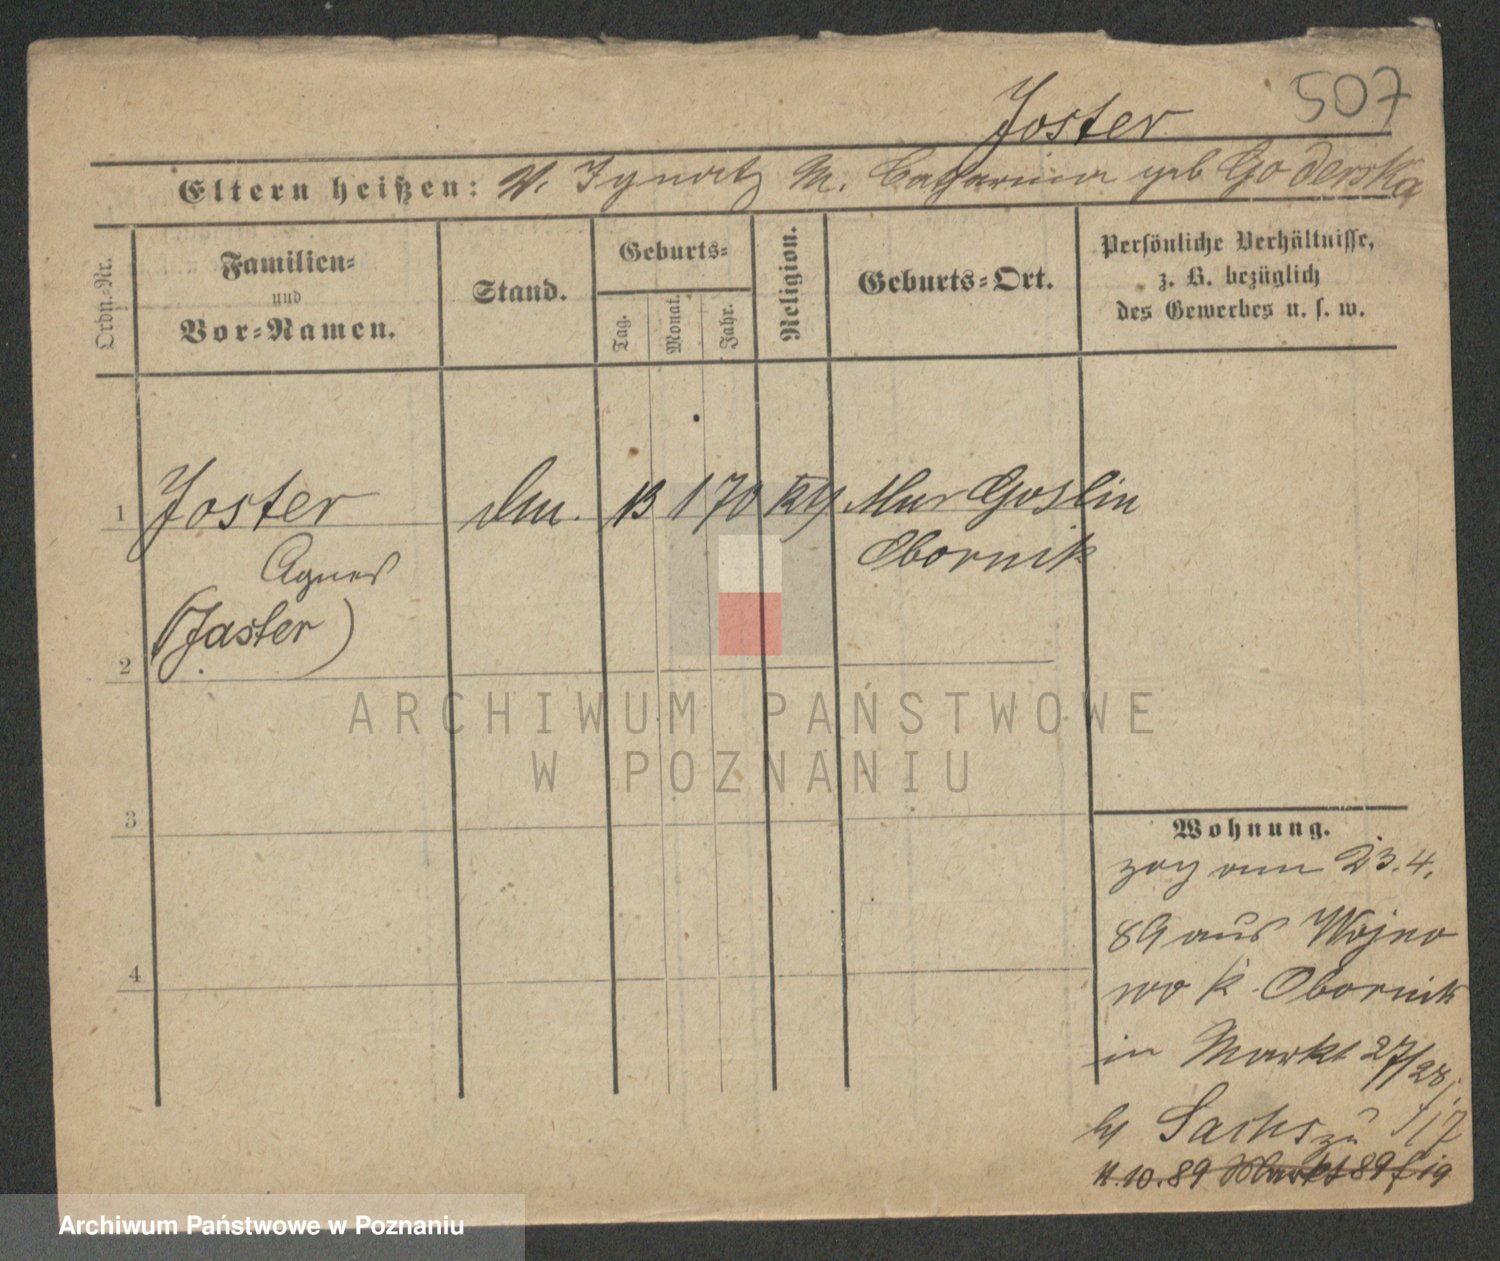 507
Joster
Eltern heißen: V. Ignatz M. Catharina geb Goderska
Ordn.-Nr.
Familien-
und
Vor-Namen.
Stand.
Geburts-
Tag.
Monat.
Jahr.
Religion.
Geburts-Ort.
Persönliche Verhältnisse,
z. B. bezüglich
des Gewerbes u. s. w.
1 Joster 13 1 70 Mur Goslin
Agnes Obornik
(Jaster)
2
3
4
Wohnung.
zog am 23.4.
89 aus Wojno
wo K. Obornik
in Markt 27/28
Sachs zu
11.10.89 Markt 89
ARCHIWUM PAŃSTWOWE
W POZNANIU
Archiwum Państwowe w Poznaniu